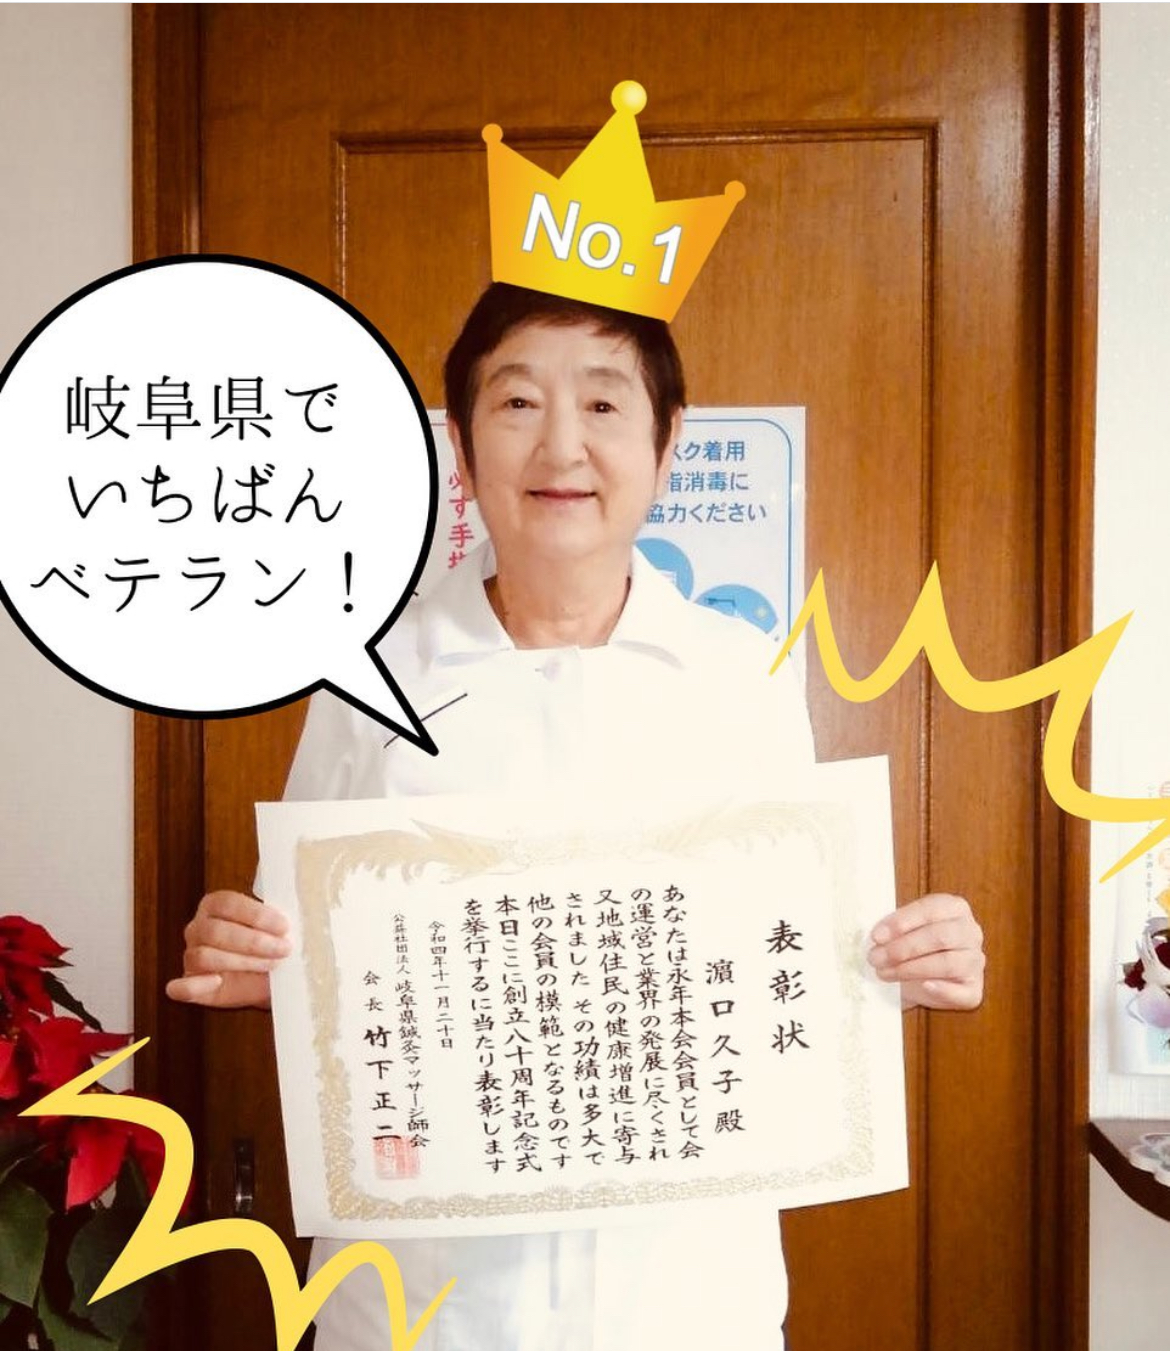 No.1
岐阜県で
いちばん
ベテラン！
必ず手
スク着用
指消毒に
協力ください
表彰状
濵口久子殿
あなたは永年本会会員として会
の運営と業界の発展に尽くされ
又地域住民の健康増進に寄与
されました その功績は多大で
他の会員の模範となるものです
本日ここに創立八十周年記念式
を挙行するに当たり表彰します
令和四年十一月二十日
公益社団法人 岐阜県鍼灸マッサージ師会
会長 竹下正二